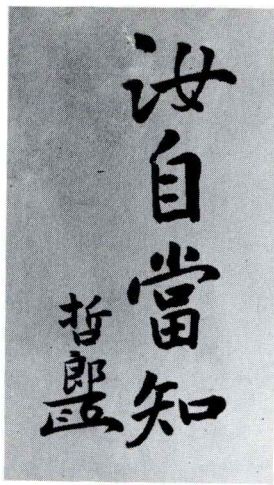 汝自當知
哲郎